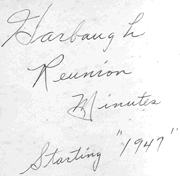 Harbaugh
Reunion
Minutes
Starting "1947"